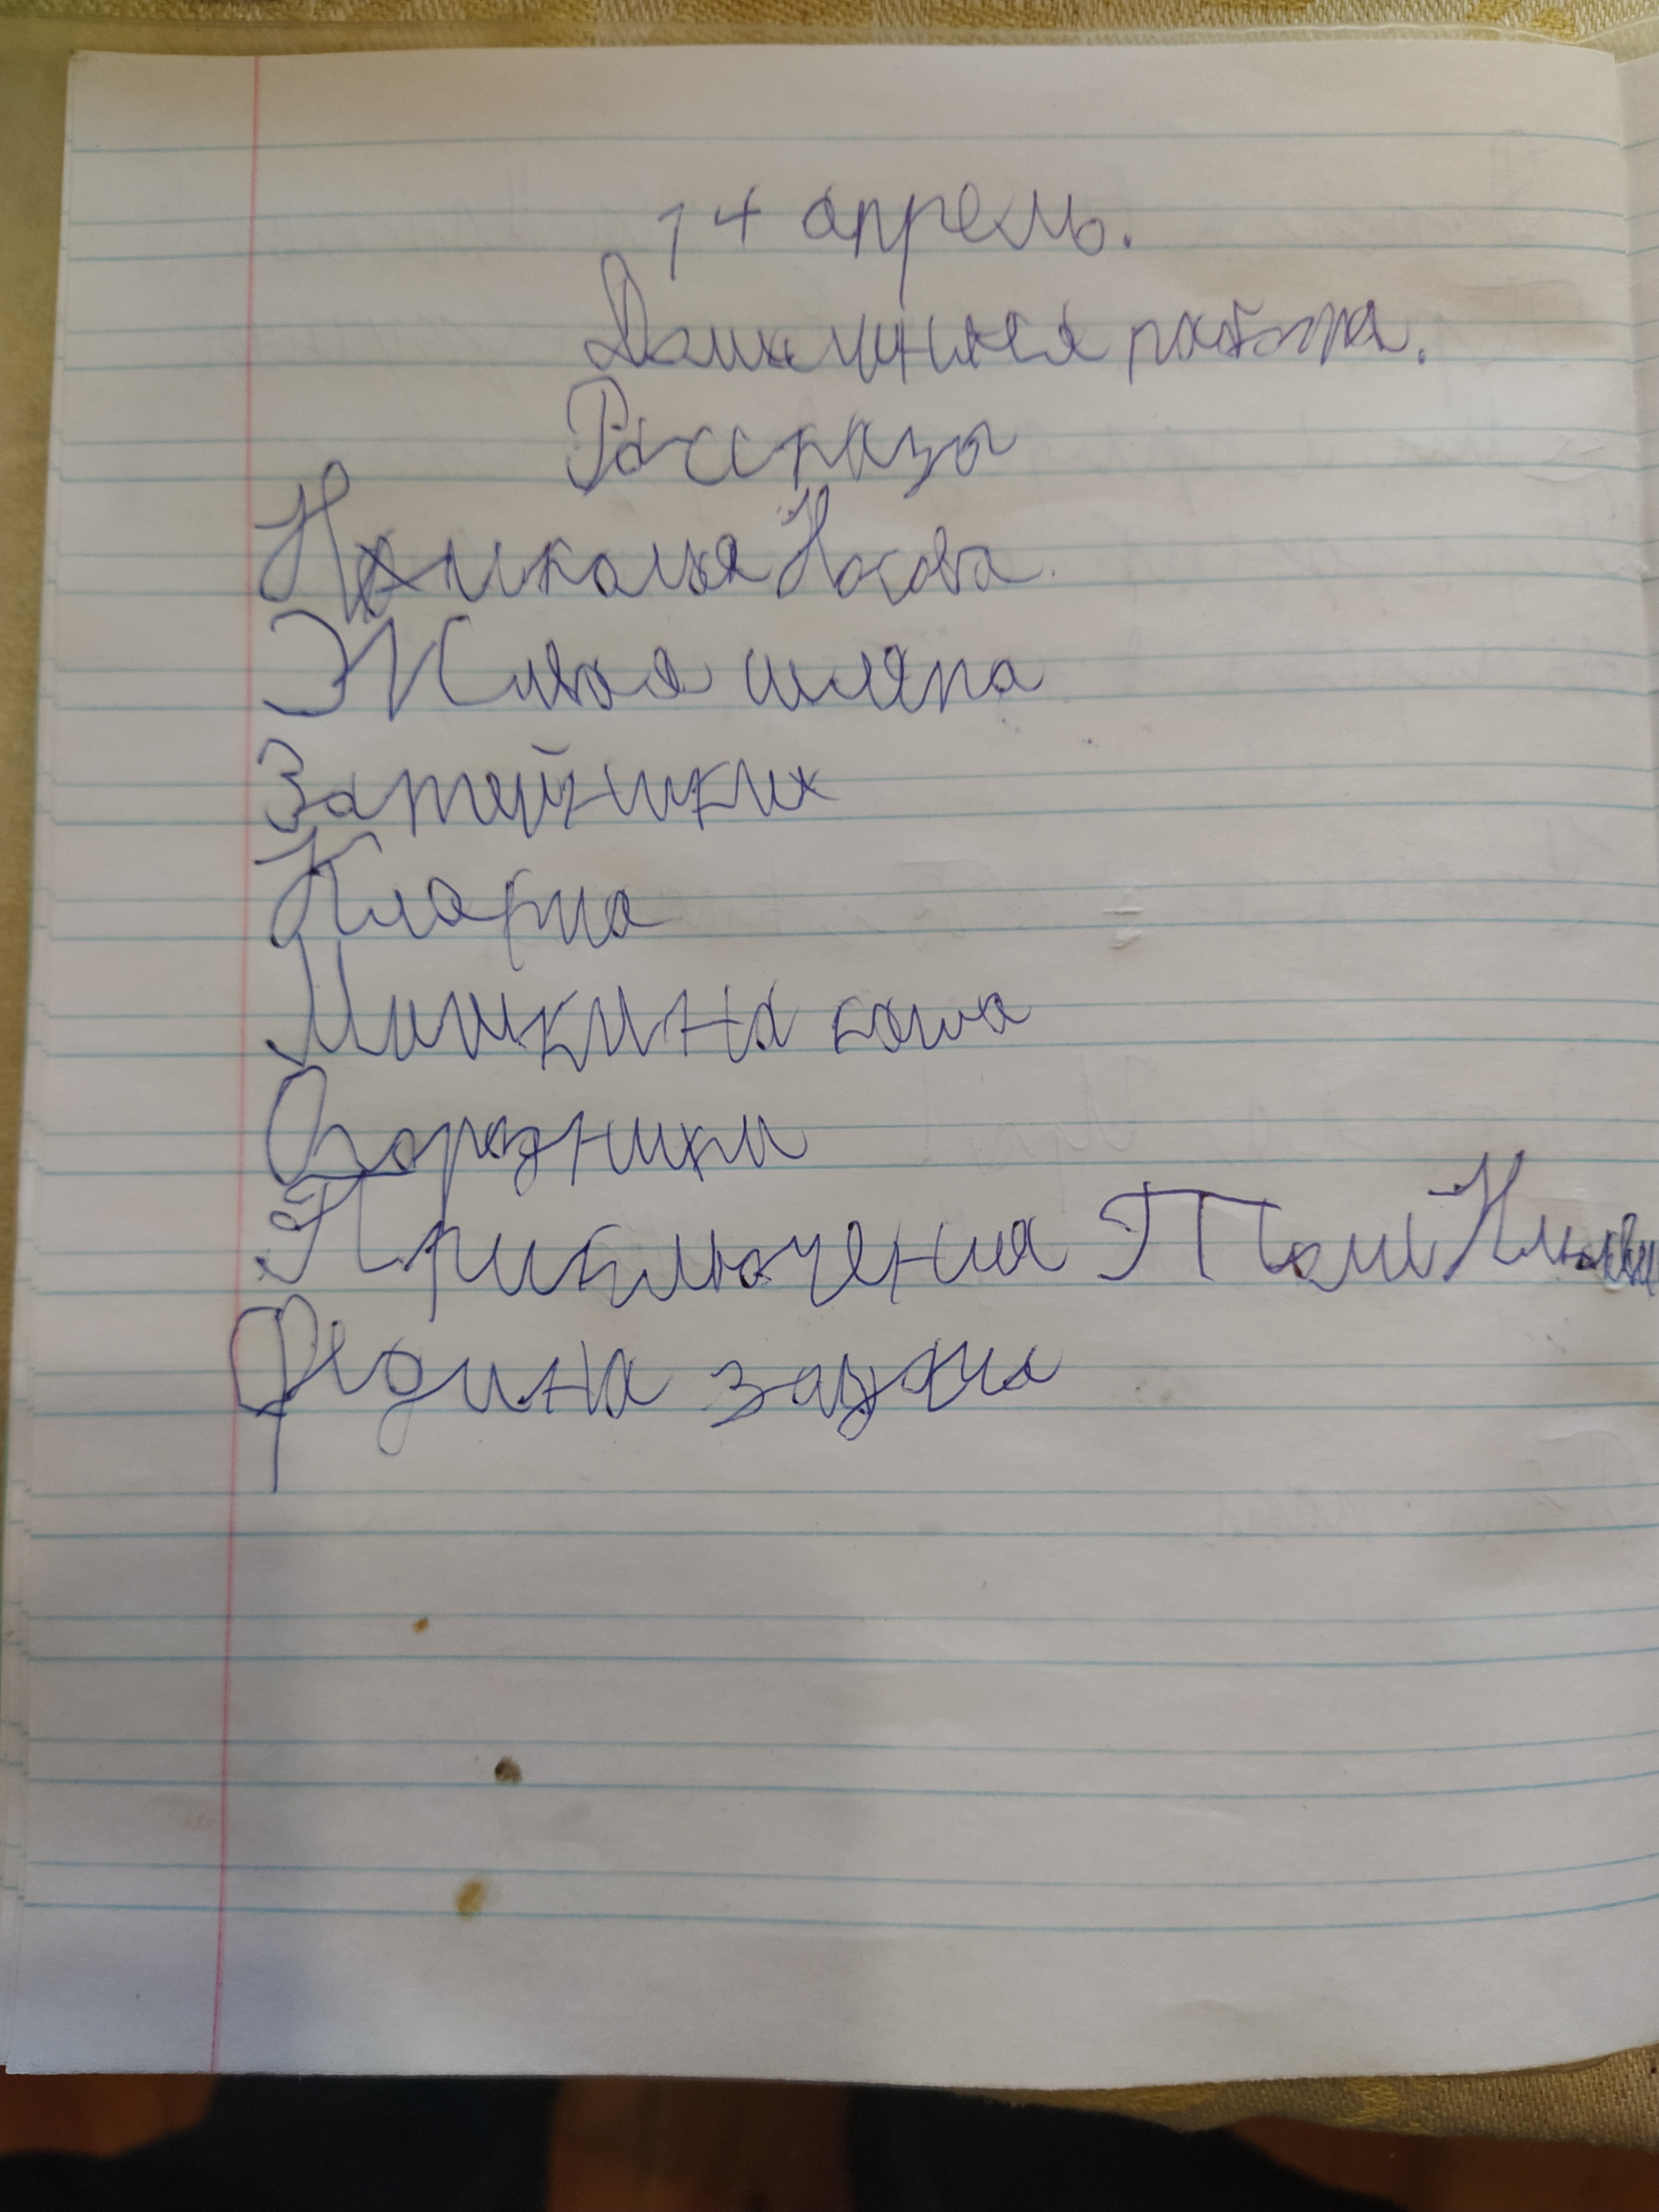 14 апрель.
Домашняя работа.
Рассказы
Николая Носова.
Живая шляпа
Затейники
Клякса
Мишкина каша
Огородники
Приключения Толи Клюквин
Федина задача